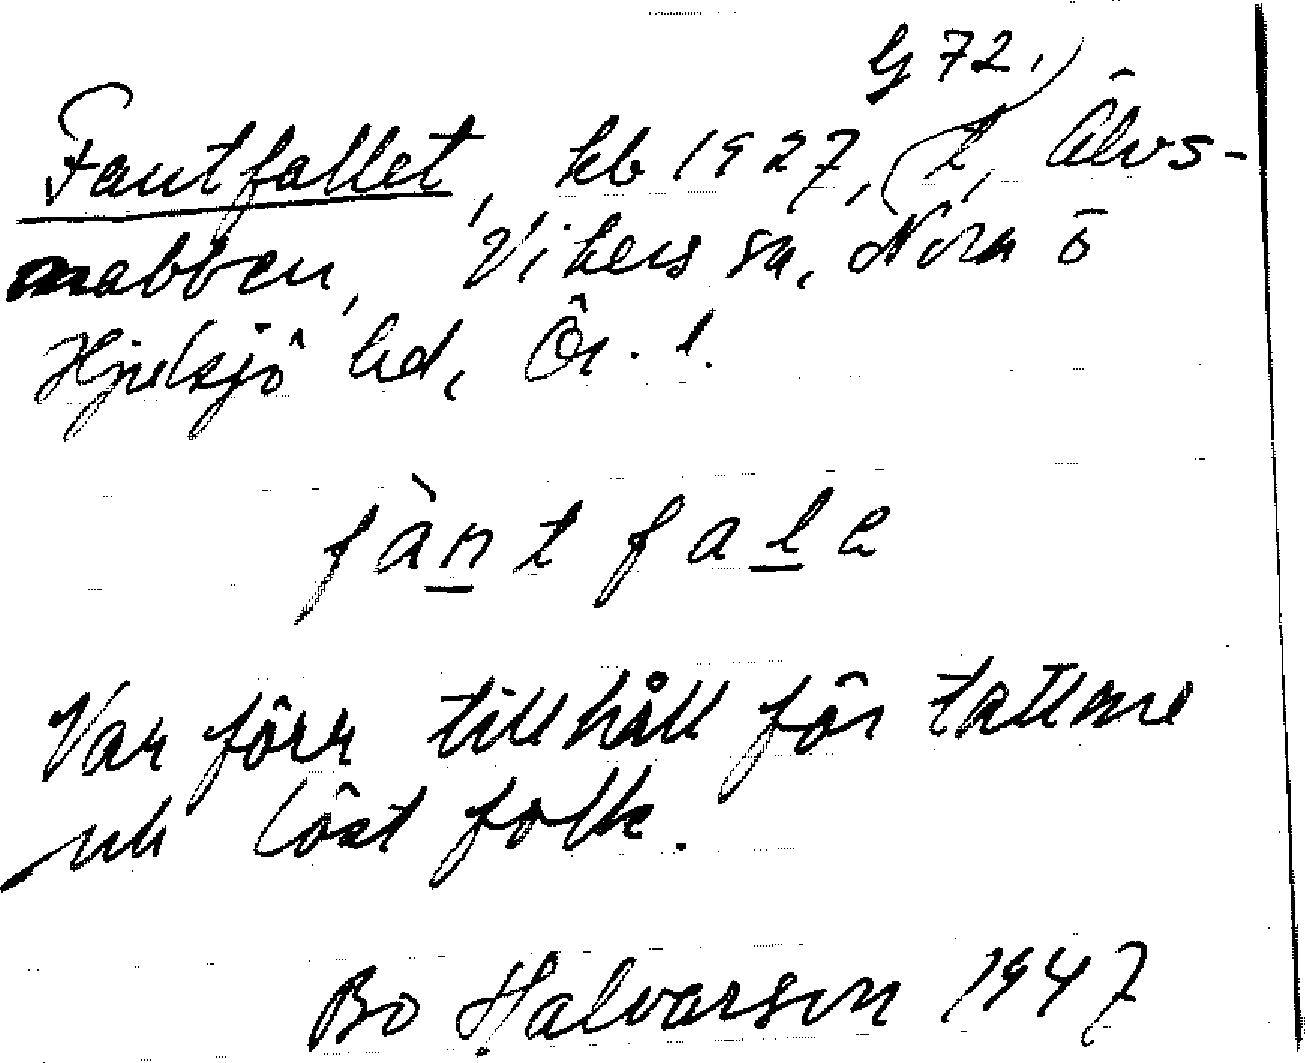 G 72.
Fantfallet, kb 1927, (t, Älvs-
nabben, Vikers sn, Nora ō
Hjulsjö bd, Ör. l.
fàntfale
Var förr tillhåll för tattare
och löst folk.
Bo Halvarson 1947